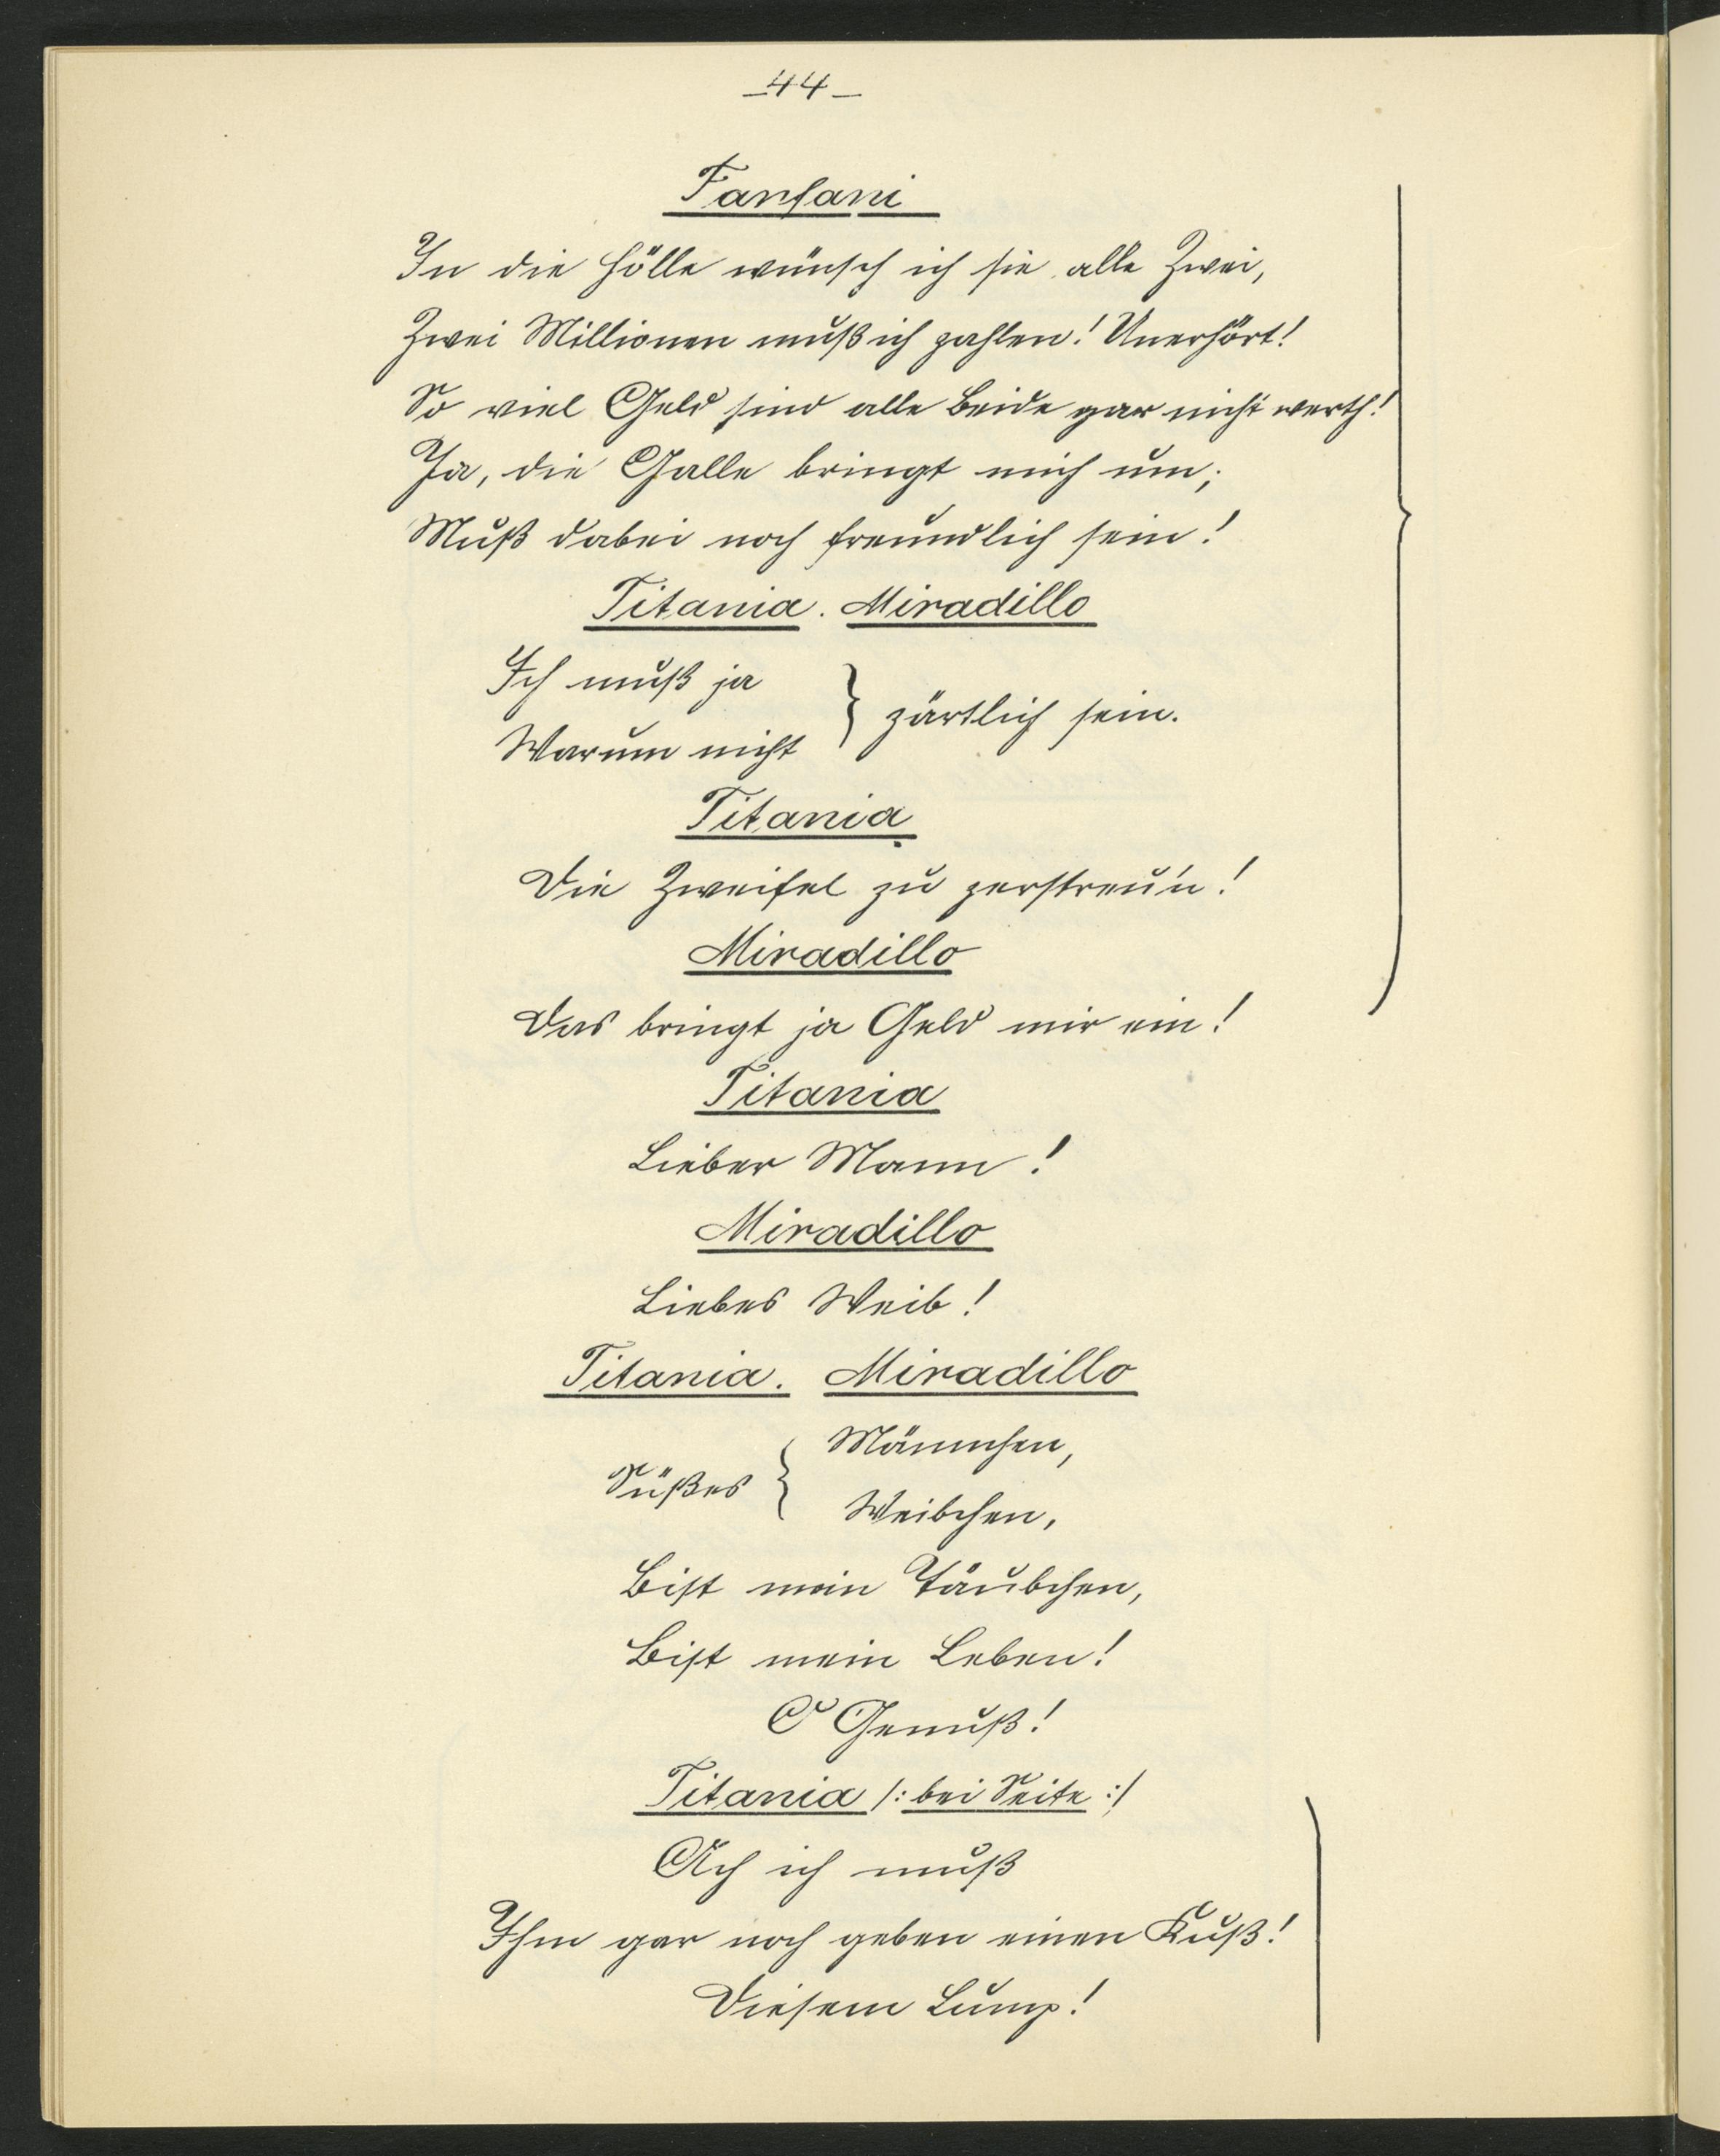 – 44 –
Fanfani
In die Hölle wünsch ich sie alle Zwei,
Zwei Millionen muß ich zahlen! Unerhört!
So viel Geld sind alle Beide gar nicht werth!
Ja, die Galle bringt mich um;
Muß dabei noch freundlich sein!
Titania. Miradillo
Ich muß ja
Warum nicht } zärtlich sein.
Titania
Die Zweifel zu zerstreu'n!
Miradillo
Das bringt ja Geld mir ein!
Titania
Lieber Mann!
Miradillo
Liebes Weib!
Titania. Miradillo
Süßes { Männchen,
Weibchen,
Bist mein Täubchen,
Bist mein Leben!
O Genuß!
Titania /: bei Seite :/
Ach ich muß
Ihm gar noch geben einen Kuß!
Diesem Lump!